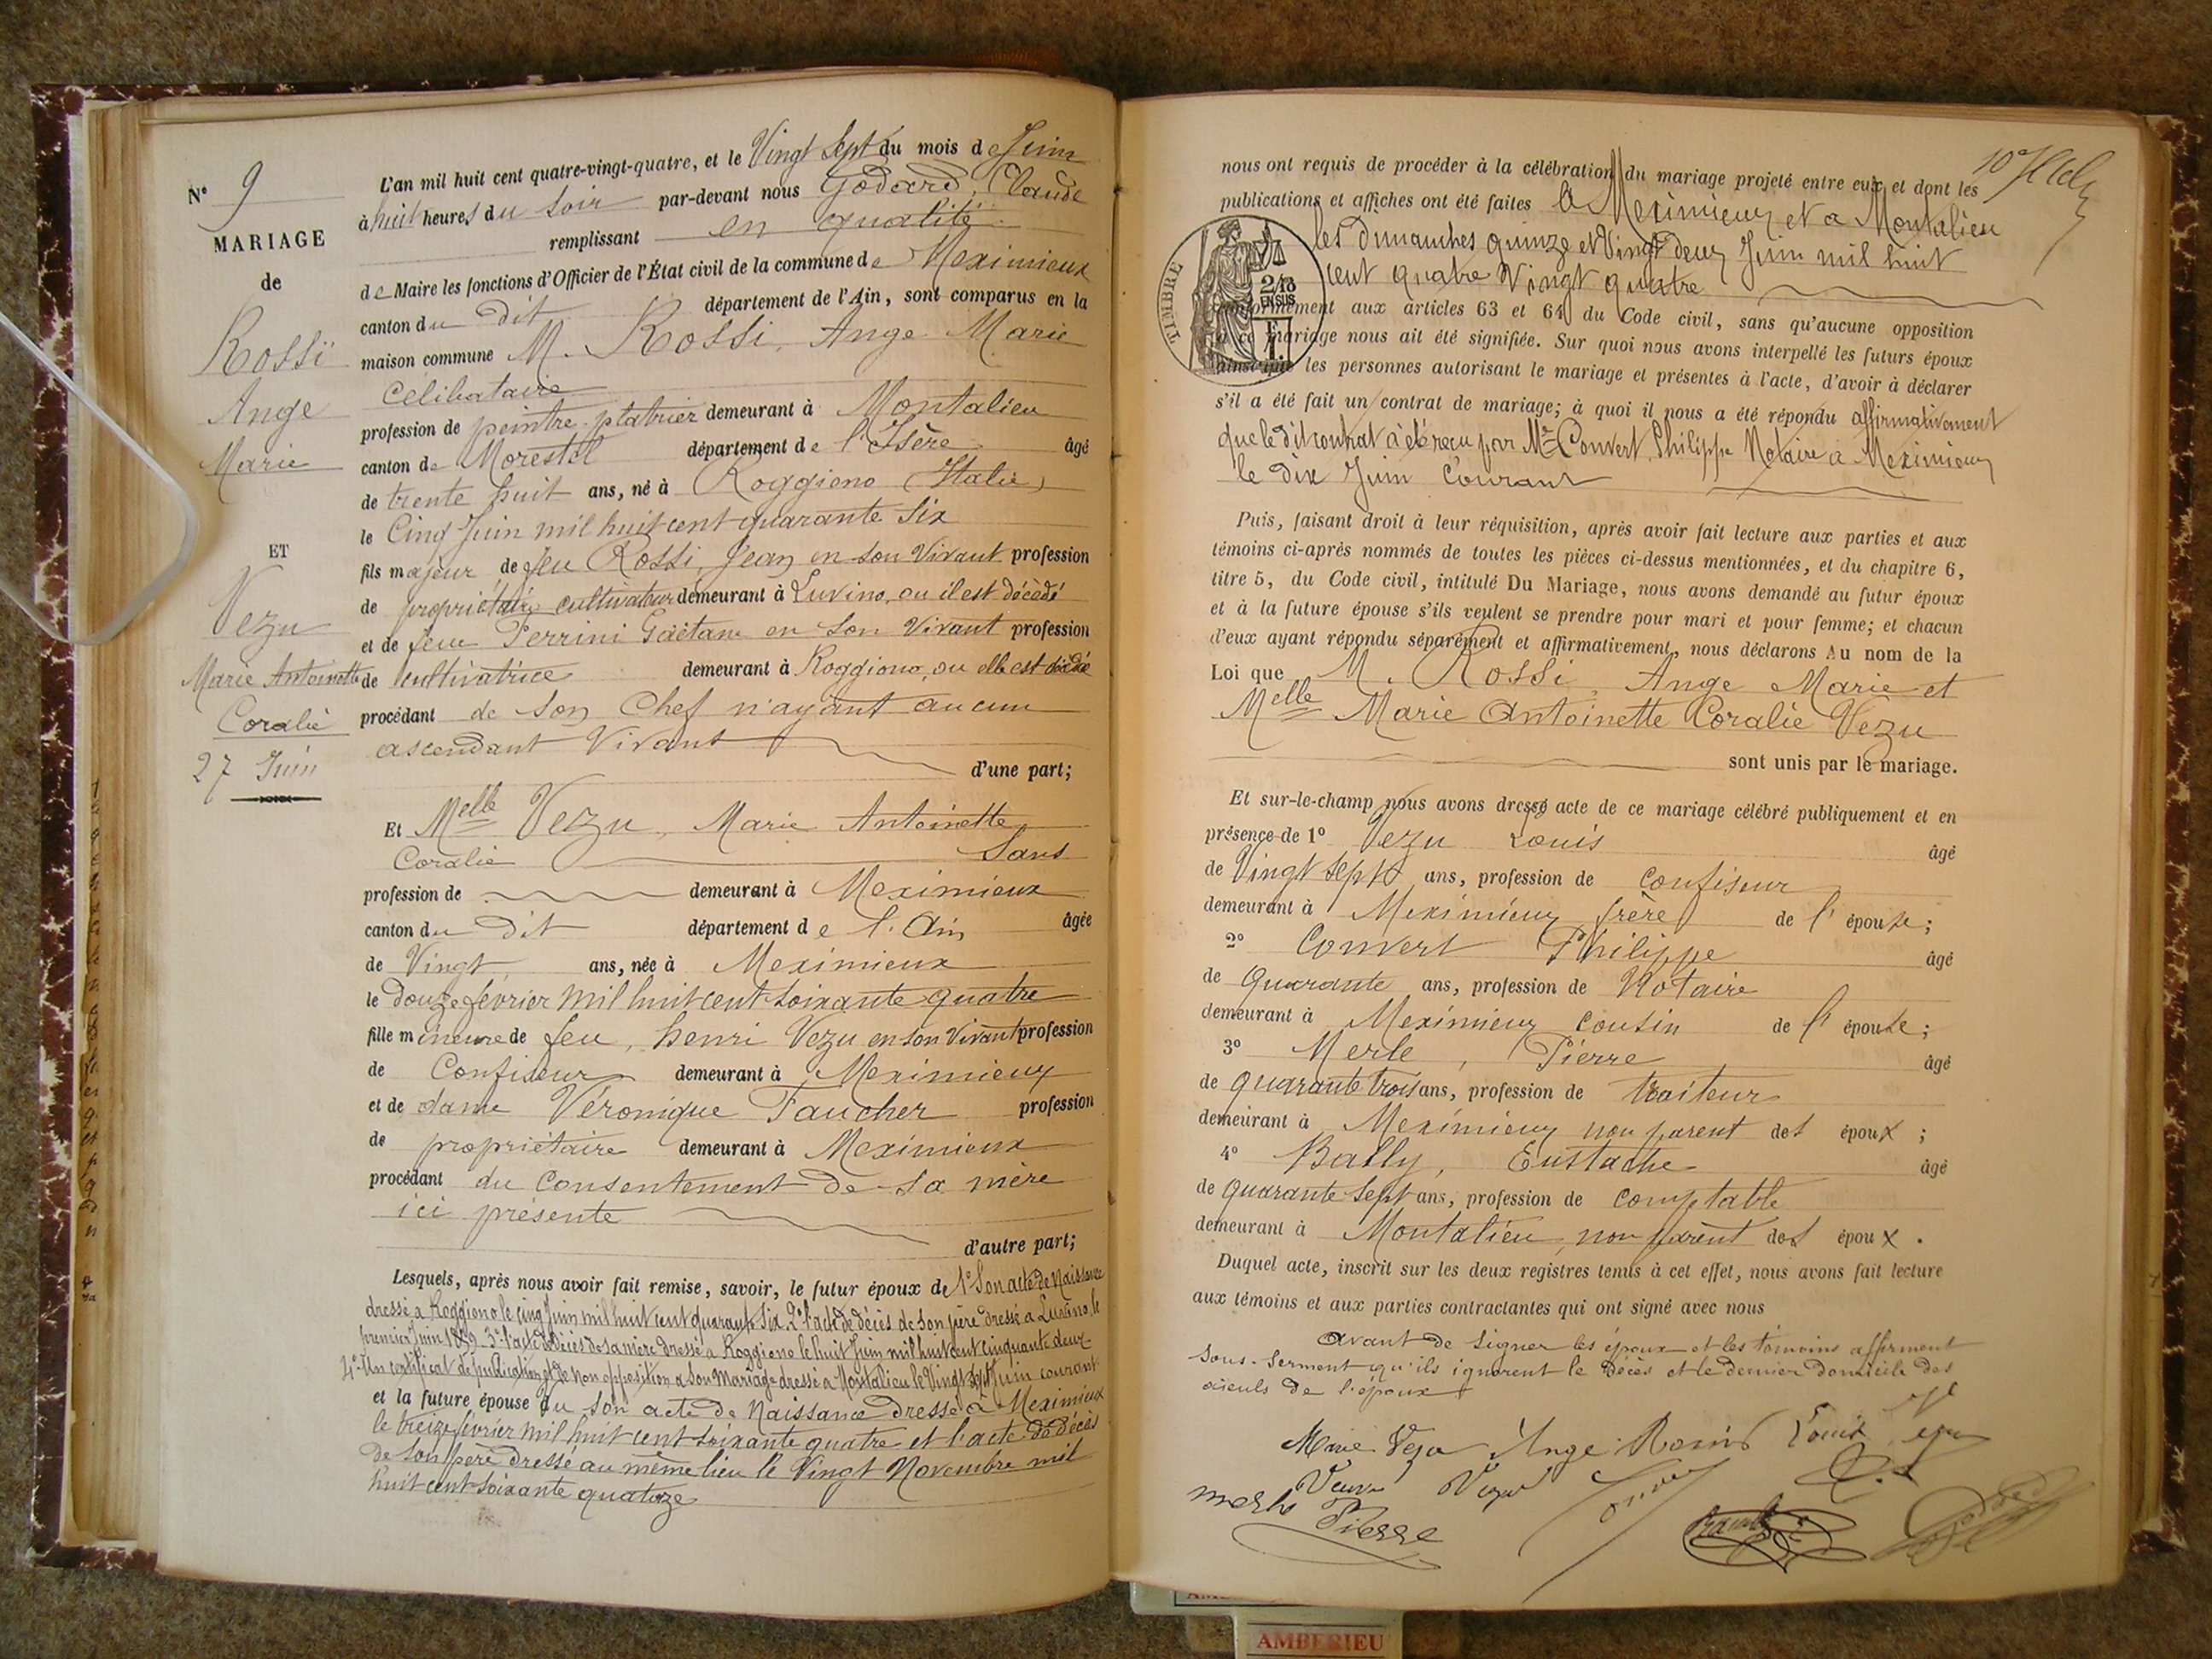 N° 9
MARIAGE
de
Rossi
Ange
Marie
ET
Vezu
Marie Antoinette
Coralie
27 Juin
L'an mil huit cent quatre-vingt-quatre, et le Vingt Sept du mois de Juin
à huit heures du soir par-devant nous Godard, Claude
remplissant en qualité
de Maire les fonctions d'Officier de l'État civil de la commune de Meximieux
canton du dit département de l'Ain, sont comparus en la
maison commune M. Rossi, Ange Marie
Celibataire
profession de peintre-platrier demeurant à Montalieu
canton de Morestel département de l'Isère âgé
de trente huit ans, né à Roggiono (Italie)
le Cinq Juin mil huit cent quarante Six
fils majeur de feu Rossi, Jean en son Vivant profession
de propriétaire cultivateur demeurant à Luvino, ou il est décédé
et de feue Perrini Gaëtane en Son Vivant profession
de cultivatrice demeurant à Roggiono, ou elle est décédé
procédant de Son Chef n'ayant aucun
ascendant Vivant
d'une part;
Et Melle Vezu, Marie Antoinette
Coralie Sans
profession de demeurant à Meximieux
canton du dit département de l'Ain âgée
de Vingt ans, née à Meximieux
le douze fevrier Mil huit cent Soixante quatre
fille mineure de feu, henri Vezu en son Vivant profession
de Confiseur demeurant à Meximieux
et de dame Véronique Faucher profession
de propriétaire demeurant à Meximieux
procédant du Consentement de sa mère
ici présente
d'autre part;
Lesquels, après nous avoir fait remise, savoir, le futur époux de 1° Son acte de Naissance
dressé a Roggiono le cinq Juin mil huit cent quarante Six 2° l'acte de décès de Son père dressé a Luvino, le
premier Juin 1859 3° l'acte de décès de sa mère dressé a Roggiono le huit Juin mil huit cent cinquante deux
4° Un certificat de publication et de non opposition a Son Mariage dressé a Montalieu le Vingt Sept Juin courant
et la future épouse du Son acte de Naissance dressé a Meximieux
le treize février mil huit cent soixante quatre et l'acte de décès
de Son père dressé au même lieu le Vingt Novembre mil
huit cent Soixante quatorze
nous ont requis de procéder à la célébration du mariage projeté entre eux et dont les
publications et affiches ont été faites A Meximieux et a Montalieu
les dimanches quinze et Vingt deux Juin mil huit
cent quatre Vingt quatre
TIMBRE
2/10
EN SUS
conformément aux articles 63 et 64 du Code civil, sans qu'aucune opposition
à ce mariage nous ait été signifiée. Sur quoi nous avons interpellé les futurs époux
ainsi que les personnes autorisant le mariage et présentes à l'acte, d'avoir à déclarer
s'il a été fait un contrat de mariage; à quoi il nous a été répondu affirmativement
que le dit contrat à été reçu par Mr Convert, Philippe Notaire à Meximieux
le dix Juin Courant
Puis, faisant droit à leur réquisition, après avoir fait lecture aux parties et aux
témoins ci-après nommés de toutes les pièces ci-dessus mentionnées, et du chapitre 6,
titre 5, du Code civil, intitulé Du Mariage, nous avons demandé au futur époux
et à la future épouse s'ils veulent se prendre pour mari et pour femme; et chacun
d'eux ayant répondu séparément et affirmativement, nous déclarons Au nom de la
Loi que M. Rossi, Ange Marie et
Melle Marie Antoinette Coralie Vezu
sont unis par le mariage.
Et sur-le-champ nous avons dressé acte de ce mariage célébré publiquement et en
présence de 1° Vezu Louis âgé
de Vingt Sept ans, profession de confiseur
demeurant à Meximieux frère de l'épouse;
2° Convert Philippe âgé
de quarante ans, profession de Notaire
demeurant à Meximieux cousin de l'épouse;
3° Merle, Pierre âgé
de quarante trois ans, profession de traiteur
demeurant à Meximieux non parent des époux;
4° Bally, Eustache âgé
de quarante Sept ans, profession de comptable
demeurant à Montalieu, non parent des époux.
Duquel acte, inscrit sur les deux registres tenus à cet effet, nous avons fait lecture
aux témoins et aux parties contractantes qui ont signé avec nous
avant de Signer les époux et les témoins affirment
Sous-Serment qu'ils ignorent le Décès et le dernier domicile des
aieuls de l'époux
Marie Vezu Ange Rossi Louis Vezu
Veuve Vezu
merle Pierre
AMBERIEU